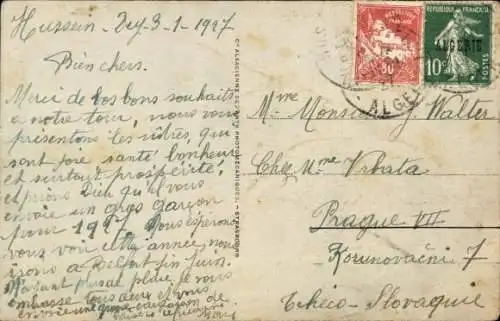 Hussein-Dey 3-1-1927
Bien chers.
Merci de vos bons souhaits
à notre tour, nous vous
présentons les nôtres, qui
sont joie santé bonheur
et surtout prospérité,
et prions Dieu qu'il vous
envoie un gros garçon
pour 1927. Nous espérons
vous voir cette année, nous
irons à Belfort fin Juin.
je vous
embrasse tous deux et vous
envoie une grosse
REPUBLIQUE FRANÇAISE
REPUBLIQUE FRANÇAISE
ALGERIE
50c
10c
POSTES
ALGER
Mme Monsieur J Walter
Chez Mme Vrbata
Prague VII
Korunovační 7
Tchéco-Slovaquie